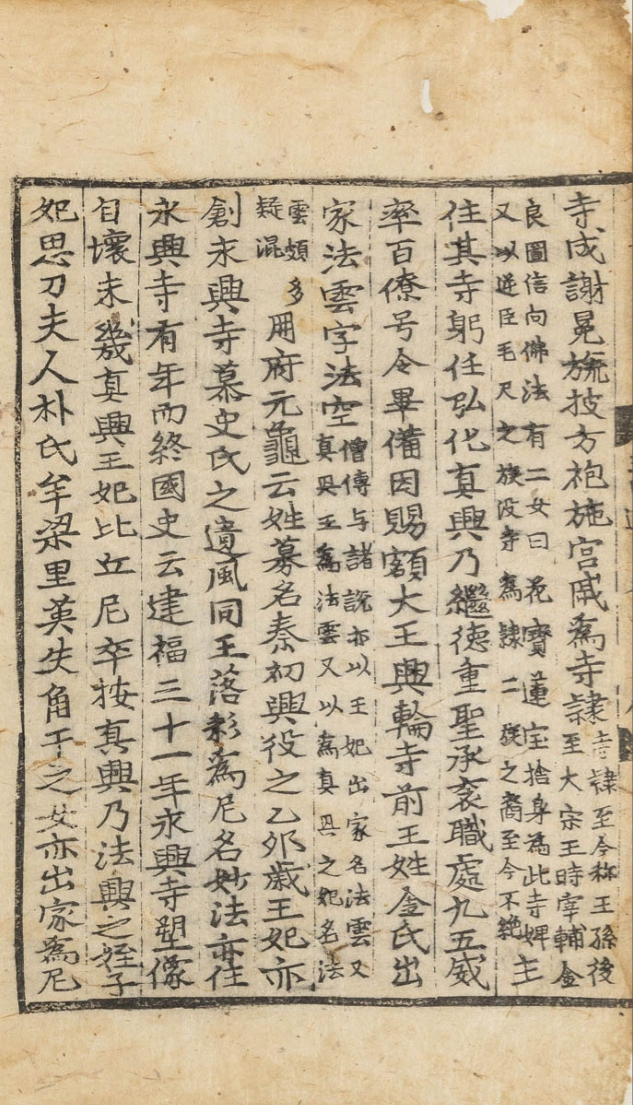 寺成謝冕旒披方袍施宮戚爲寺隷寺隷至今称王孫後至大宗王時宰輔金
良圖信向佛法有二女曰花寶蓮宝捨身為此寺婢又以逆臣毛尺之族没寺為隷二族之裔至今不絶主
住其寺躬任弘化真興乃繼德重聖承衮職處九五威
率百僚号令畢備因賜額大王興輪寺前王姓金氏出
家法雲字法空僧傳与諸說亦以王妃出家名法雲又真興王為法雲又以為真興之妃名法
雲頗多疑混冊府元龜云姓募名秦初興役之乙夘歲王妃亦
創永興寺慕史氏之遺風同王落彩為尼名妙法亦住
永興寺有年而終國史云建福三十一年永興寺塑像
自壞未幾真興王妃比丘尼卒按真興乃法興之姪子
妃思刀夫人朴氏牟梁里英失角干之女亦出家為尼